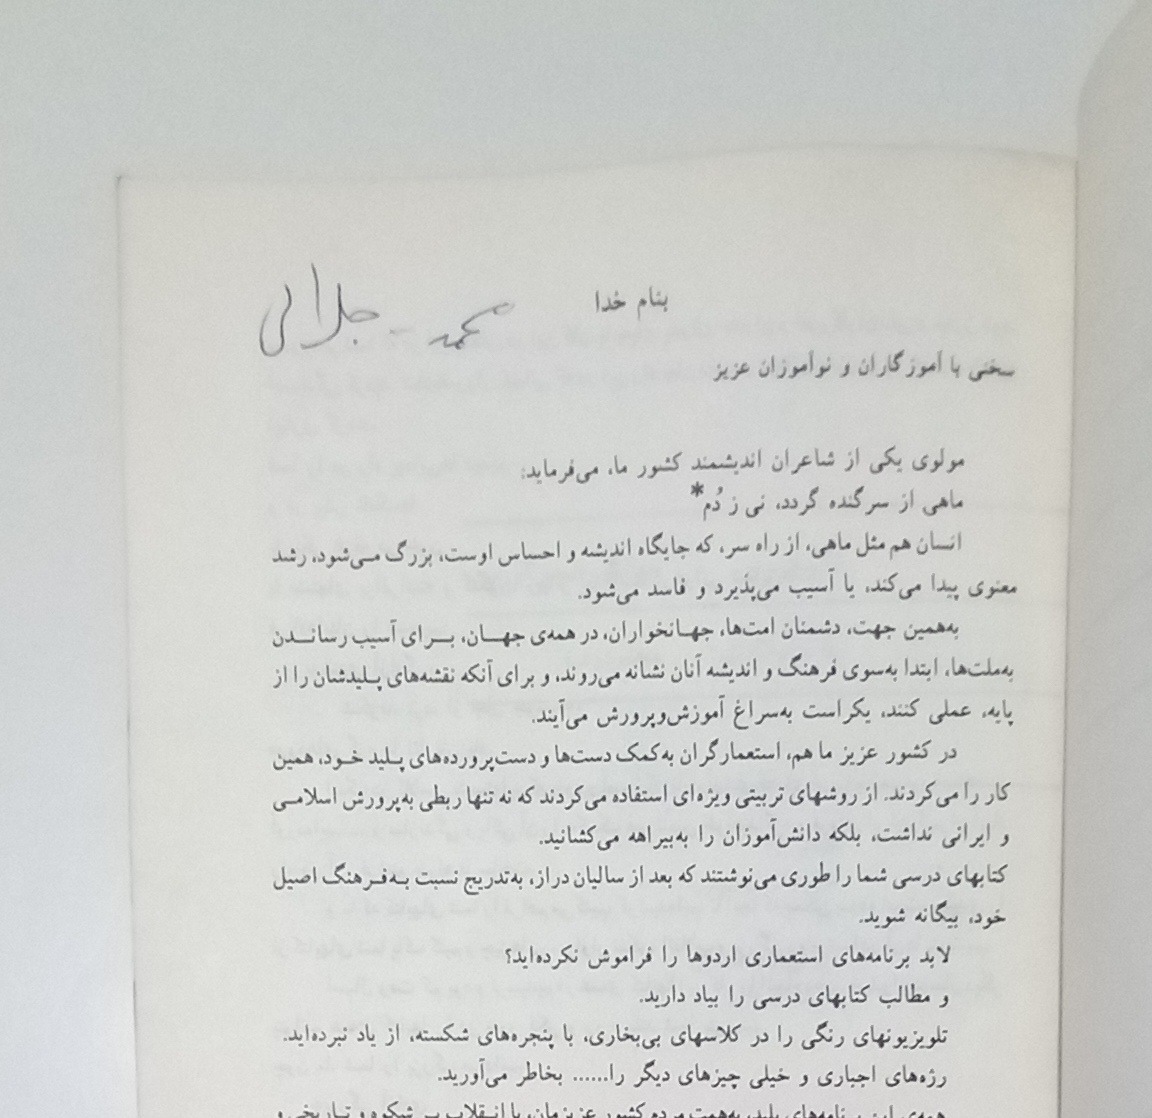 بنام خدا
محمد - جلالی
سخنی با آموزگاران و نوآموزان عزیز
مولوی یکی از شاعران اندیشمند کشور ما، می‌فرماید:
ماهی از سرگنده گردد، نی ز دُم*
انسان هم مثل ماهی، از راه سر، که جایگاه اندیشه و احساس اوست، بزرگ می‌شود، رشد
معنوی پیدا می‌کند، یا آسیب می‌پذیرد و فاسد می‌شود.
به‌همین جهت، دشمنان امت‌ها، جهانخواران، در همه‌ی جهان، برای آسیب رساندن
به‌ملت‌ها، ابتدا به‌سوی فرهنگ و اندیشه آنان نشانه می‌روند، و برای آنکه نقشه‌های پلیدشان را از
پایه، عملی کنند، یکراست به‌سراغ آموزش‌وپرورش می‌آیند.
در کشور عزیز ما هم، استعمارگران به‌کمک دست‌ها و دست‌پرورده‌های پلید خود، همین
کار را می‌کردند. از روشهای تربیتی ویژه‌ای استفاده می‌کردند که نه تنها ربطی به‌پرورش اسلامی
و ایرانی نداشت، بلکه دانش‌آموزان را به‌بیراهه می‌کشانید.
کتابهای درسی شما را طوری می‌نوشتند که بعد از سالیان دراز، به‌تدریج نسبت به‌فرهنگ اصیل
خود، بیگانه شوید.
لابد برنامه‌های استعماری اردوها را فراموش نکرده‌اید؟
و مطالب کتابهای درسی را بیاد دارید.
تلویزیونهای رنگی را در کلاسهای بی‌بخاری، با پنجره‌های شکسته، از یاد نبرده‌اید.
رژه‌های اجباری و خیلی چیزهای دیگر را...... بخاطر می‌آورید.
همه‌ی این برنامه‌های پلید، به‌همت مردم کشور عزیزمان، با انقلاب پر شکوه و تاریخی و